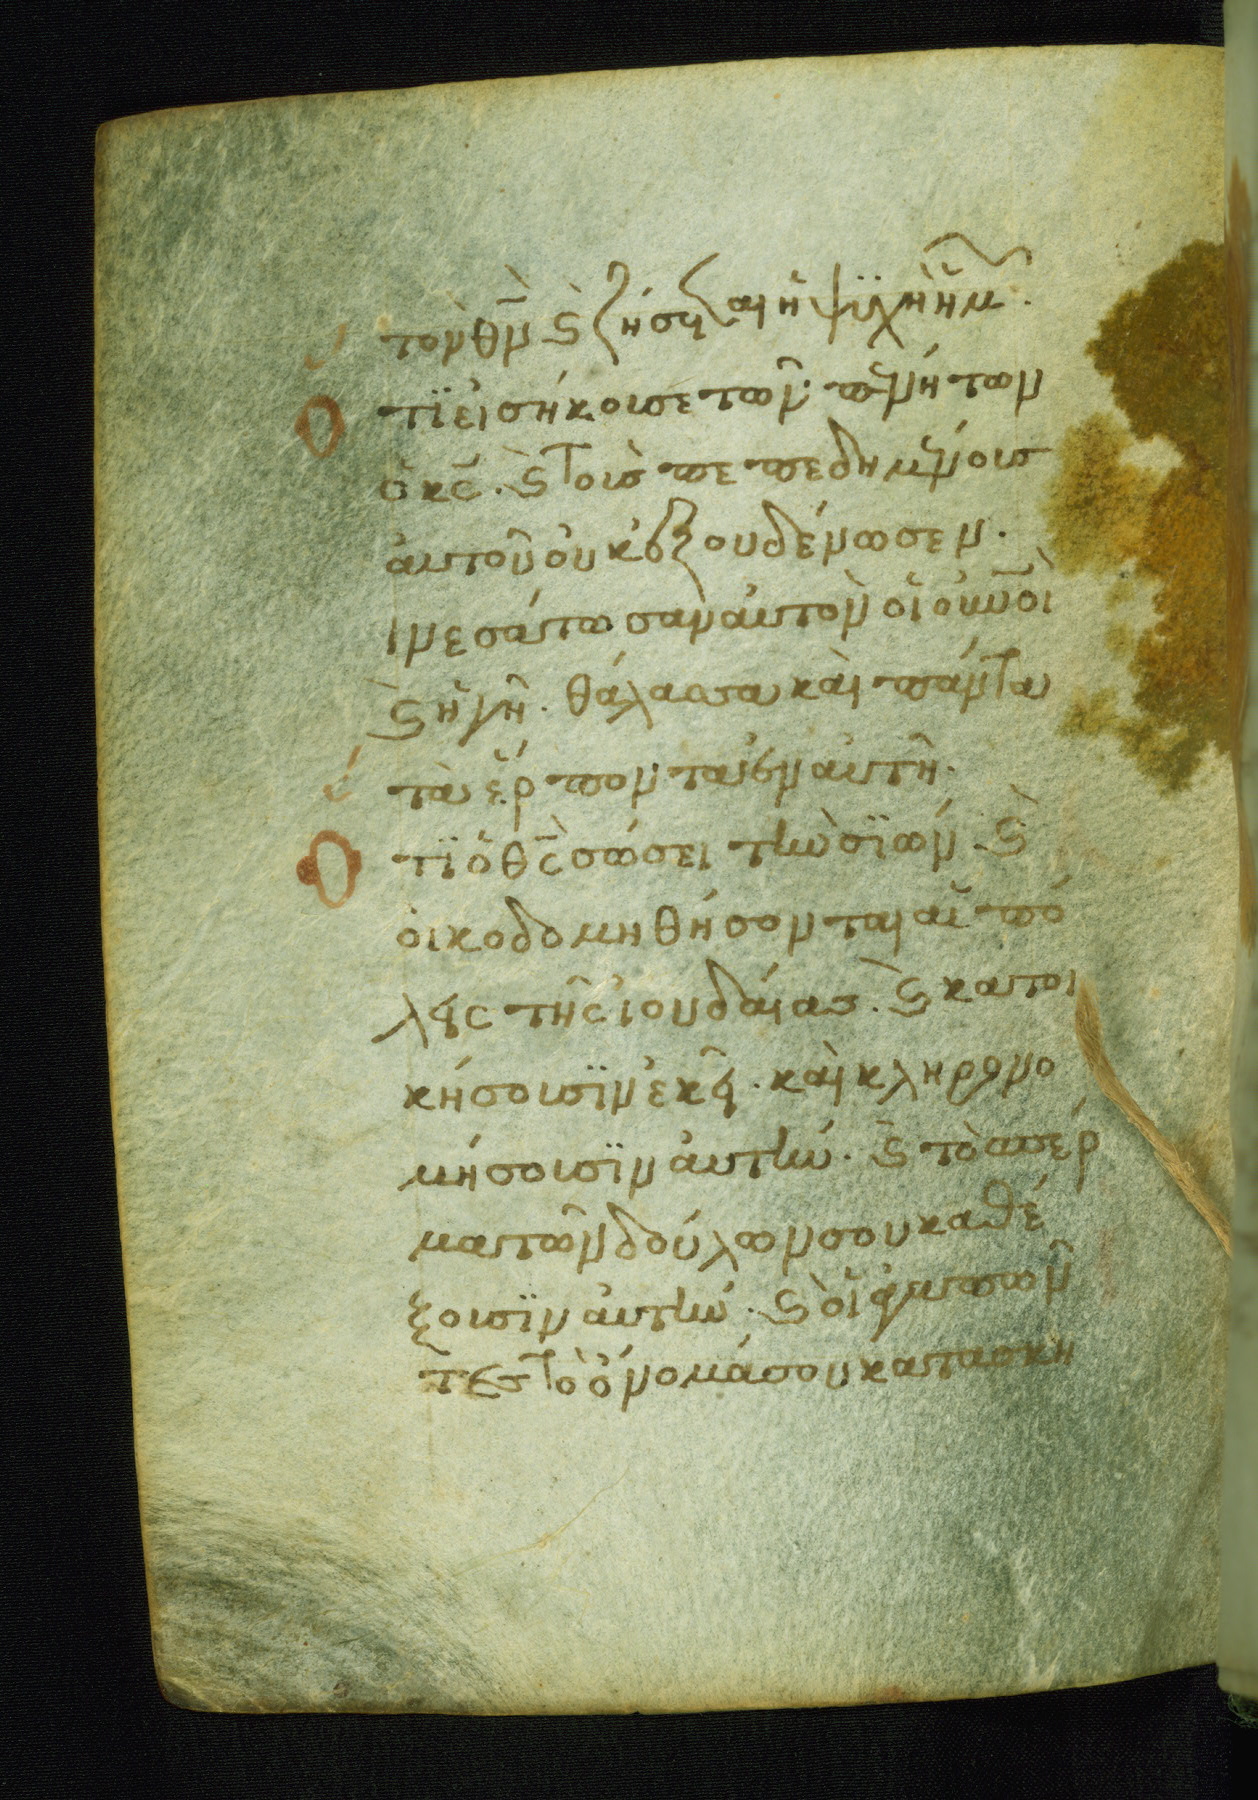 τὸν θν̄ ϗ ζήσεται ἡ ψϋχὴ ἡμῶν.
Ὅτϊ εἰσήκουσε τῶν πενήτων
ὁ κς̄. ϗ τοὺς πεπεδημένους
αὐτοῦ οὐκ ἐξουδένωσεν.
ινεσάτωσαν αὐτὸν οἱ οὐνοὶ
ϗ ἡ γῆ. θάλασσα καὶ πάντα
τὰ ἕρποντα ἐν αὐτῆ.
Ὅτϊ ὁ θς̄ σώσει τὴν σϊών. ϗ
οἰκοδομηθήσονται αἱ πό
λεις τῆς ἰουδαίας. ϗ κατοι
κήσουσϊν ἐκεῖ. καὶ κληρονο
μήσουσϊν αὐτήν. ϗ τὸ σπέρ
μα τῶν δούλων σου καθέ
ξουσϊν αὐτήν. ϗ οἱ ἀγαπῶν
τες τὸ ὄνομά σου κατασκη